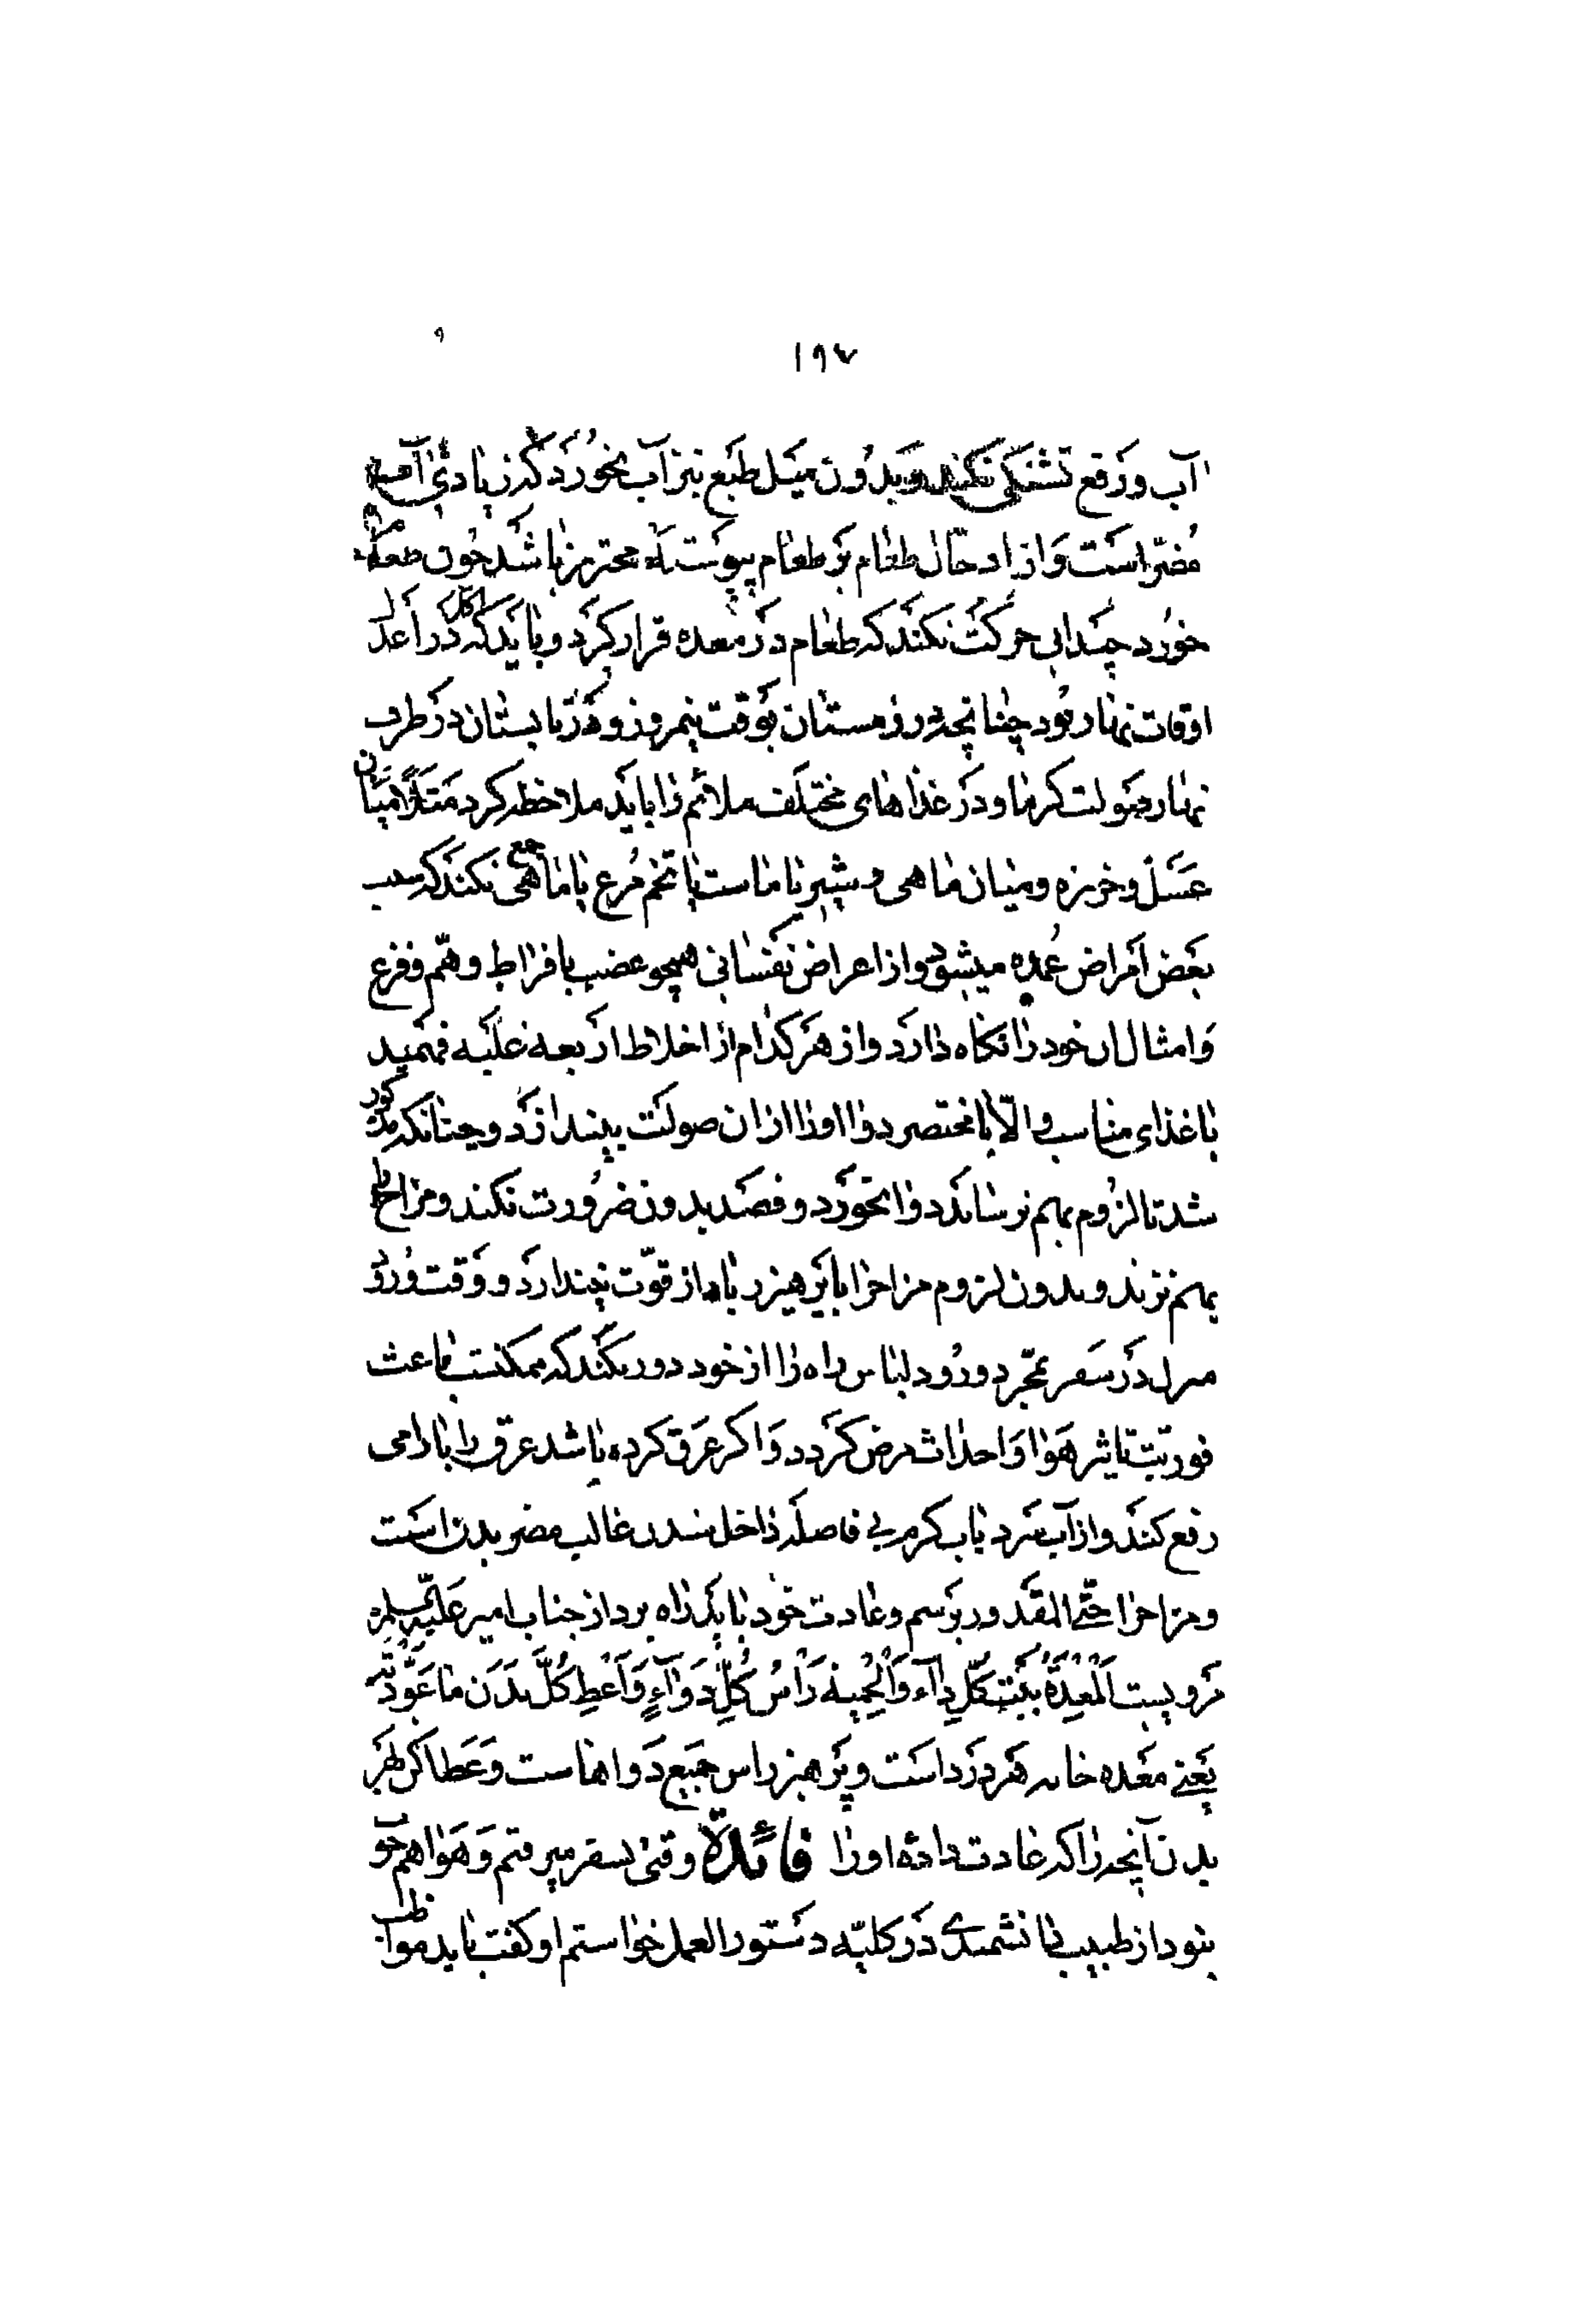 ۱۹۷
آب و رفع تشنگی نکند و بدون میل طبع نیز آب نخورد که زیادی آب
مضرّ است و از ادخال طعام بر طعام پیوسته محترز باشد چون طعام
خورد چندانی حرکت نکند که طعام در معده قرار گیرد و باید که اکل در اعدل
اوقات نهار بود چنانچه در زمستان بوقت نیمروز و در تابستان در طرف
نهار و صولت گرما و در غذاهای مختلف ملائم را باید ملاحظه کرد مثلاً میان
عسل و خربزه و میان ماهی و شیر یا ماست یا تخم مرغ با ماهی جمع نکند که سبب
بعض امراض عمده میشود و از اعراض نفسانی همچو غضب بافراط و همّ و فزع
و امثال ان خود را نگاه دارد و از هر کدام از اخلاط اربعه غلبه فهمید
با غذای مناسب و الّا با مختصر دوا او را از ان صولت بیندازد و چنانکه مذکور
شد تا لزوم بهم نرساند دوا نخورد و فصد بدون ضرورت نکند و مزاج را
بهم نزند و بدون لزوم مزاجرا با پرهیز زیاد از قوّت نیندازد و وقت ورود
منزل در سفر بمجرّد ورود لباس راه را از خود دور نکند که ممکنست باعث
فوریّت تاثیر هوا و احداث مرض گردد و اگر عرق کرده باشد عرق را بارامی
رفع کند و از آب سرد بآب گرم بی فاصله داخل شدن غالب مضر بدن است
و مزاجرا حتّی المقدور برسم و عادت خود باید راه برد از جناب امیر علیه السلام
مرویست اَلْمِعْدَةُ بَیْتُ کُلِّ دآءٍ وَالْحِمْیَةُ رَاْسُ کُلِّ دَوَآءٍ وَاَعْطِ کُلَّ بَدَنٍ ما عَوَّدْتَهُ
یعنی معده خانه هر درد است و پرهیز راس جمیع دواهاست و عطا کن بهر
بدن آنچه را که عادت داده او را فائدة وقتی بسفر میرفتم و هوا هم خوب
نبود از طبیب دانشمندی در کلیّه دستورالعمل خواستم او گفت باید مواظب